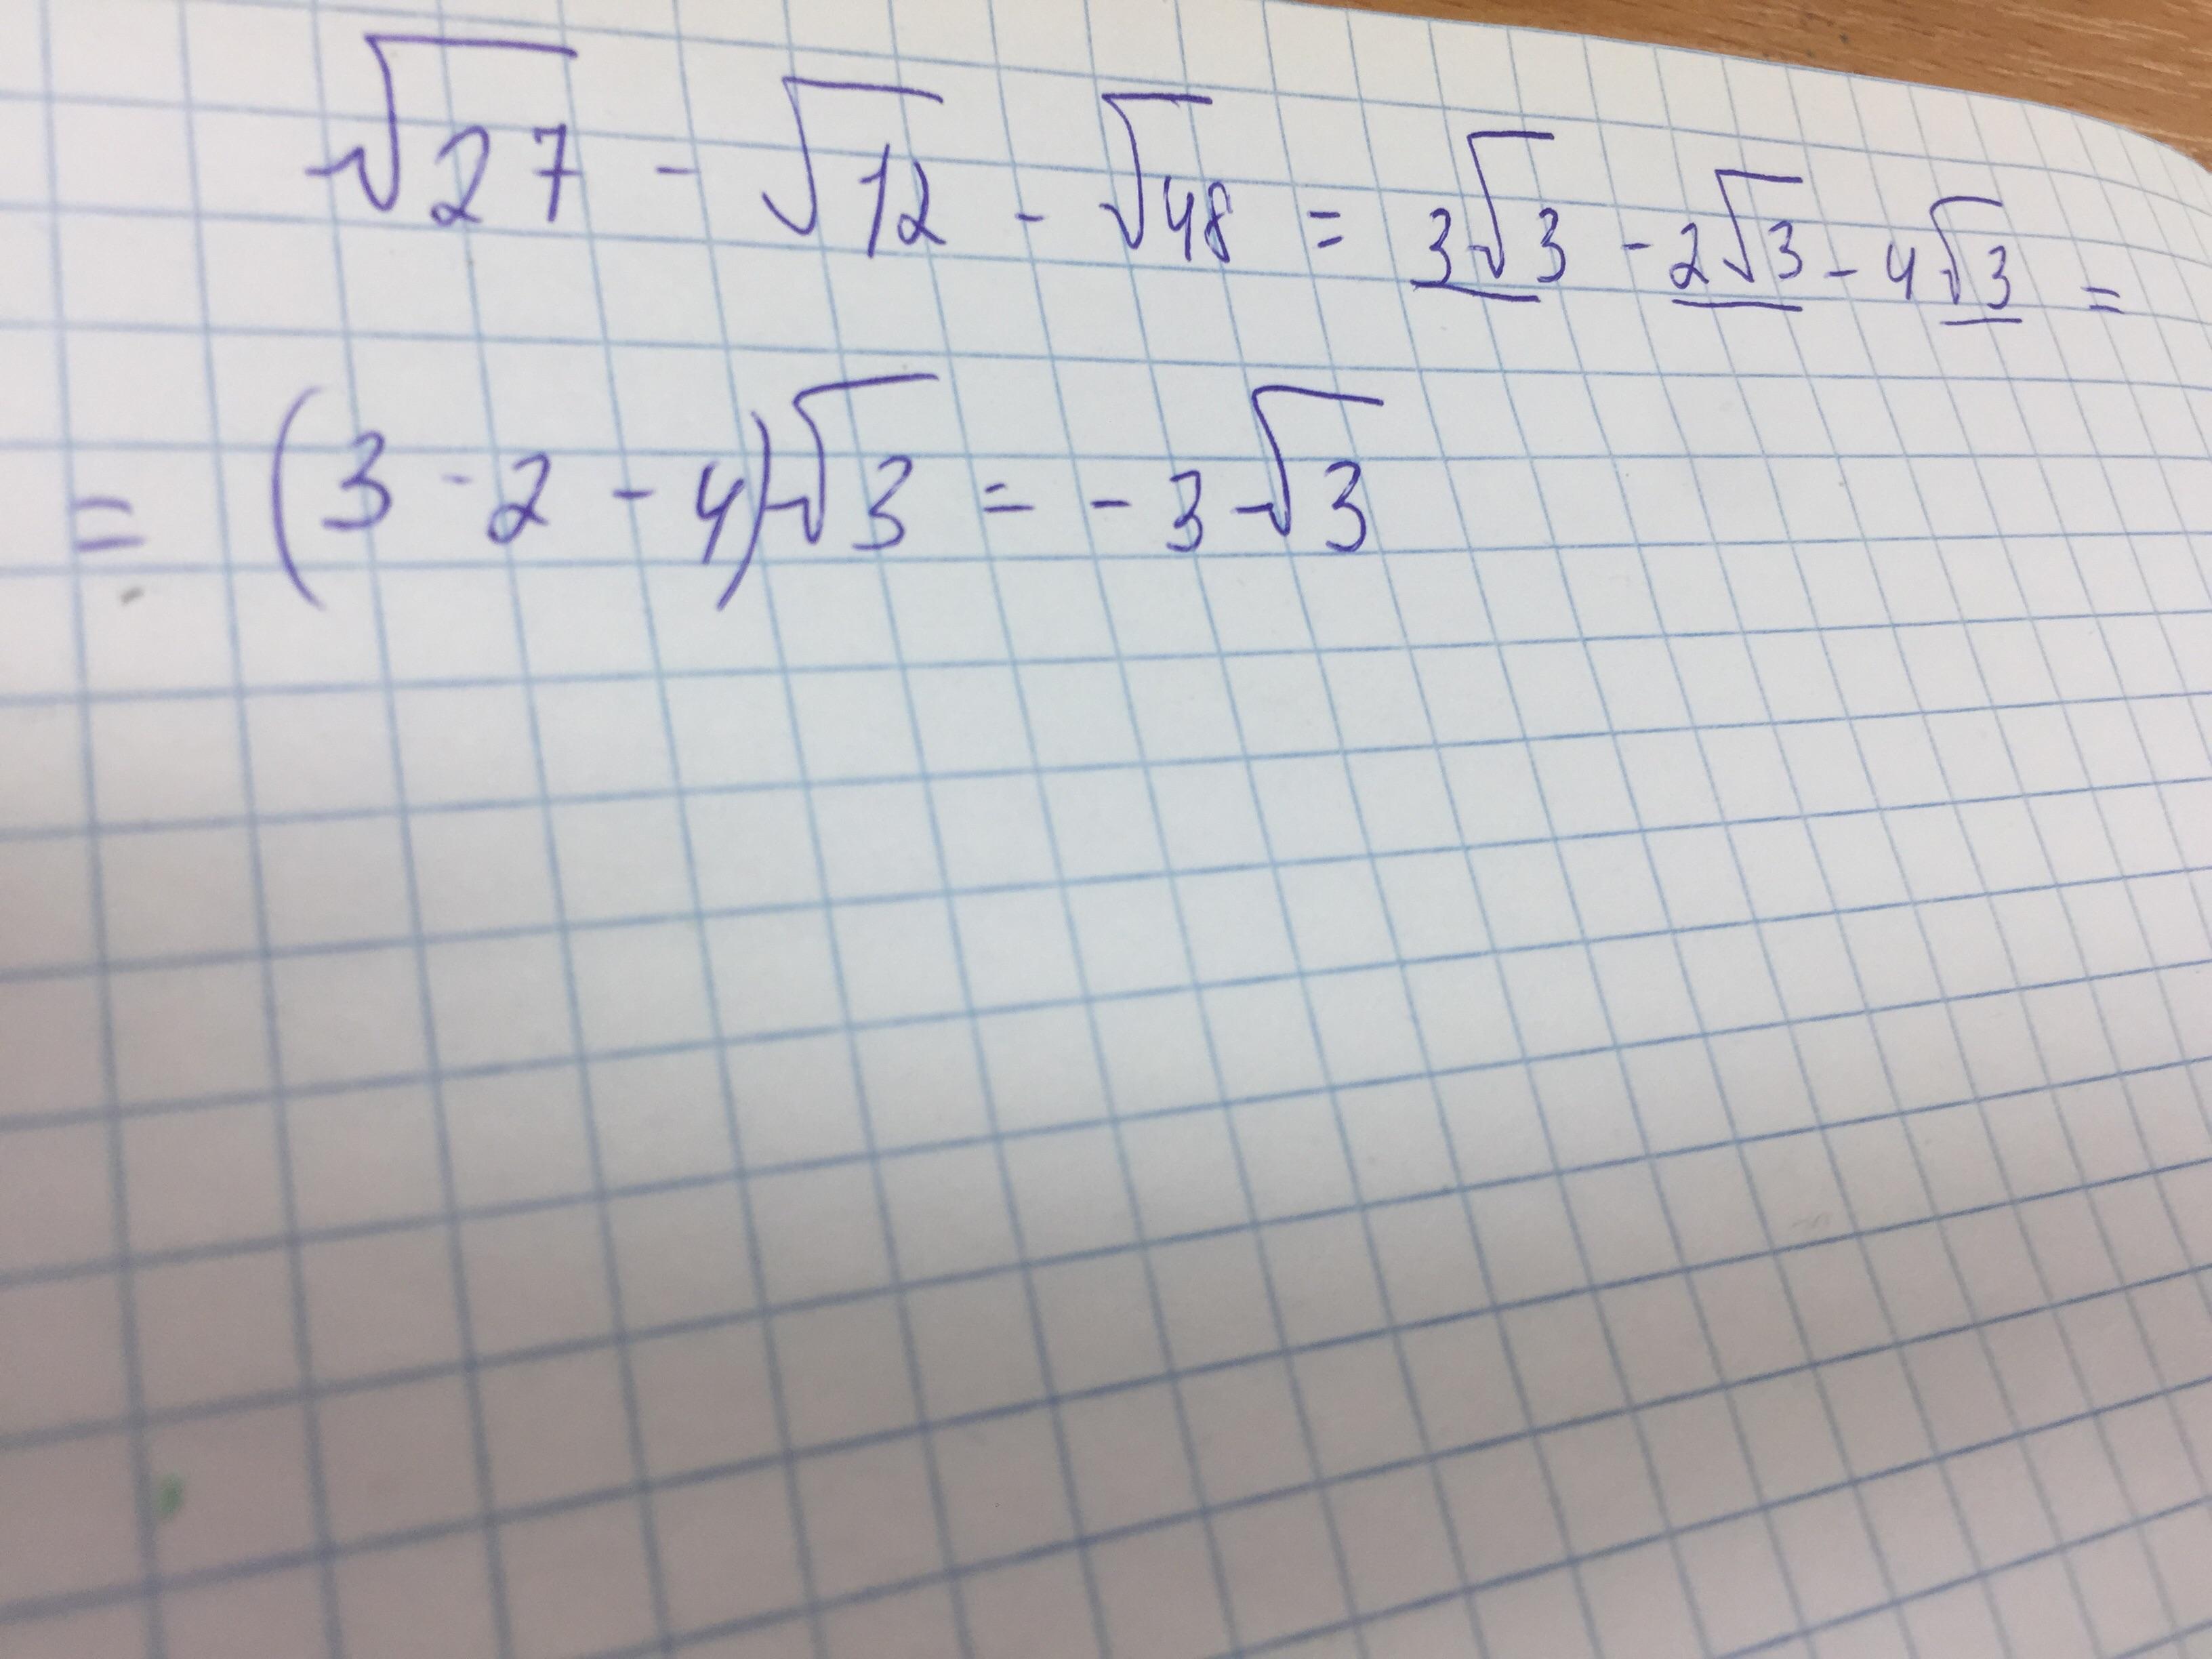 √27 - √12 - √48 = 3√3 - 2√3 - 4√3 =
= (3 - 2 - 4)√3 = - 3√3